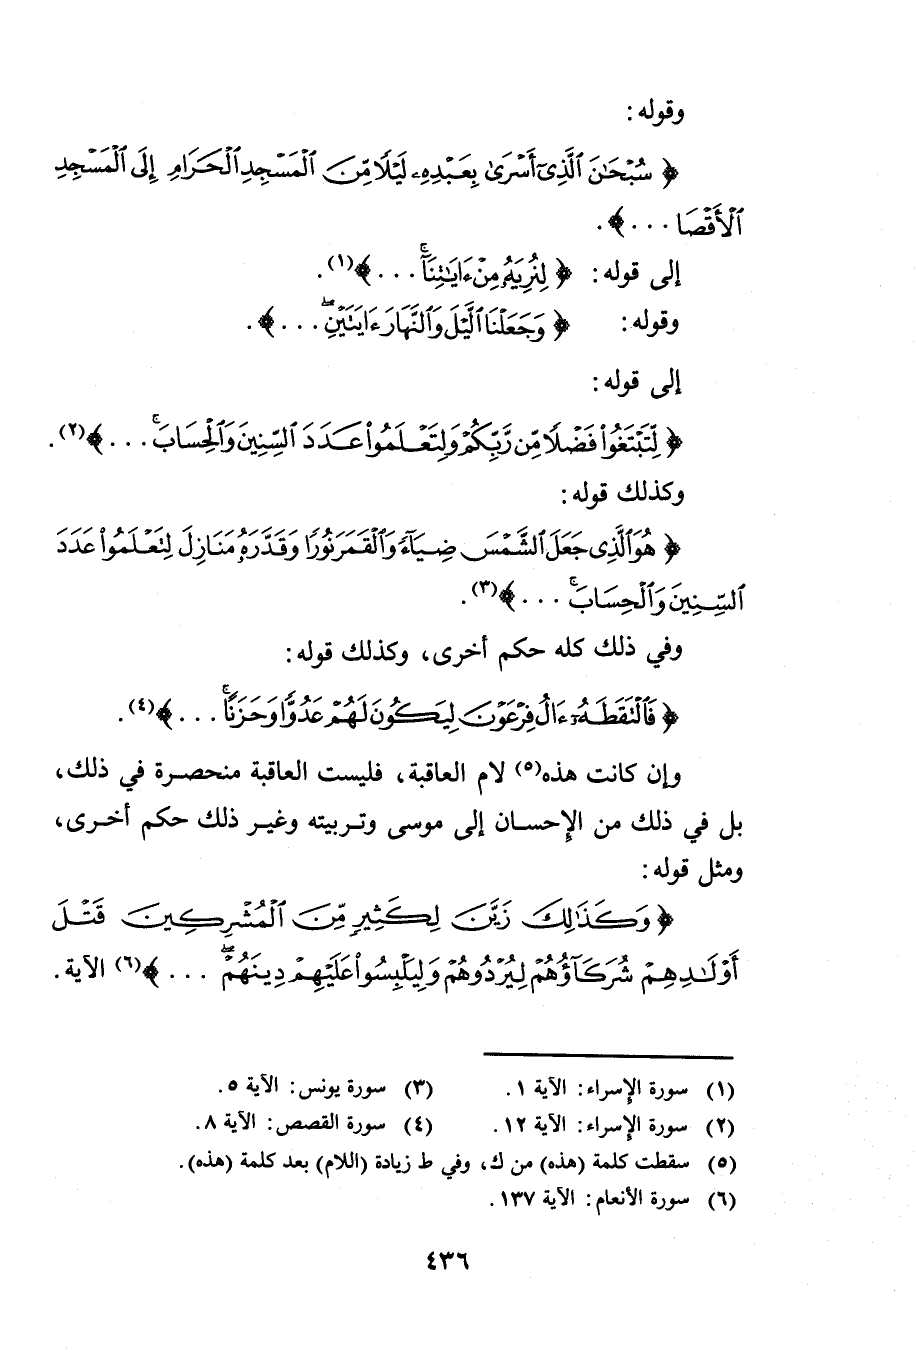 وقوله:
﴿ سُبْحَـٰنَ ٱلَّذِىٓ أَسْرَىٰ بِعَبْدِهِۦ لَيْلًا مِّنَ ٱلْمَسْجِدِ ٱلْحَرَامِ إِلَى ٱلْمَسْجِدِ
ٱلْأَقْصَا . . . ﴾.
إلى قوله: ﴿ لِنُرِيَهُۥ مِنْ ءَايَـٰتِنَآ ۚ . . . ﴾(١).
وقوله: ﴿ وَجَعَلْنَا ٱلَّيْلَ وَٱلنَّهَارَ ءَايَتَيْنِ ۖ . . . ﴾.
إلى قوله:
﴿ لِّتَبْتَغُوا۟ فَضْلًا مِّن رَّبِّكُمْ وَلِتَعْلَمُوا۟ عَدَدَ ٱلسِّنِينَ وَٱلْحِسَابَ ۚ . . . ﴾(٢).
وكذلك قوله:
﴿ هُوَ ٱلَّذِى جَعَلَ ٱلشَّمْسَ ضِيَآءً وَٱلْقَمَرَ نُورًا وَقَدَّرَهُۥ مَنَازِلَ لِتَعْلَمُوا۟ عَدَدَ
ٱلسِّنِينَ وَٱلْحِسَابَ ۚ . . . ﴾(٣).
وفي ذلك كله حكم أخرى، وكذلك قوله:
﴿ فَٱلْتَقَطَهُۥٓ ءَالُ فِرْعَوْنَ لِيَكُونَ لَهُمْ عَدُوًّا وَحَزَنًا ۗ . . . ﴾(٤).
وإن كانت هذه(٥) لام العاقبة، فليست العاقبة منحصرة في ذلك،
بل في ذلك من الإحسان إلى موسى وتربيته وغير ذلك حكم أخرى،
ومثل قوله:
﴿ وَكَذَٰلِكَ زَيَّنَ لِكَثِيرٍ مِّنَ ٱلْمُشْرِكِينَ قَتْلَ
أَوْلَـٰدِهِمْ شُرَكَآؤُهُمْ لِيُرْدُوهُمْ وَلِيَلْبِسُوا۟ عَلَيْهِمْ دِينَهُمْ ۖ . . . ﴾(٦) الآية.
(١) سورة الإسراء: الآية ١. (٣) سورة يونس: الآية ٥.
(٢) سورة الإسراء: الآية ١٢. (٤) سورة القصص: الآية ٨.
(٥) سقطت كلمة (هذه) من ك، وفي ط زيادة (اللام) بعد كلمة (هذه).
(٦) سورة الأنعام: الآية ١٣٧.
٤٣٦